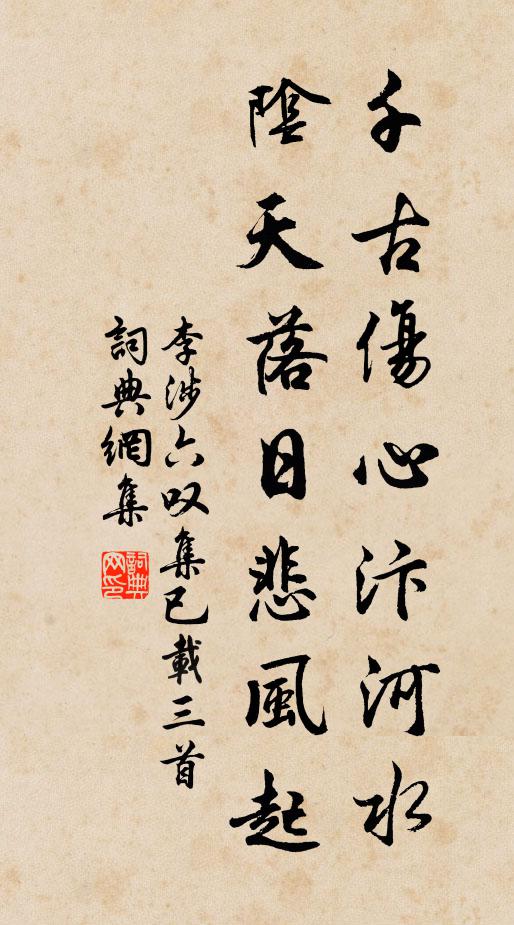 千古傷心汴河水
陰天落日悲風起
李涉六叹集已載三首
詞典網集
詞典網印